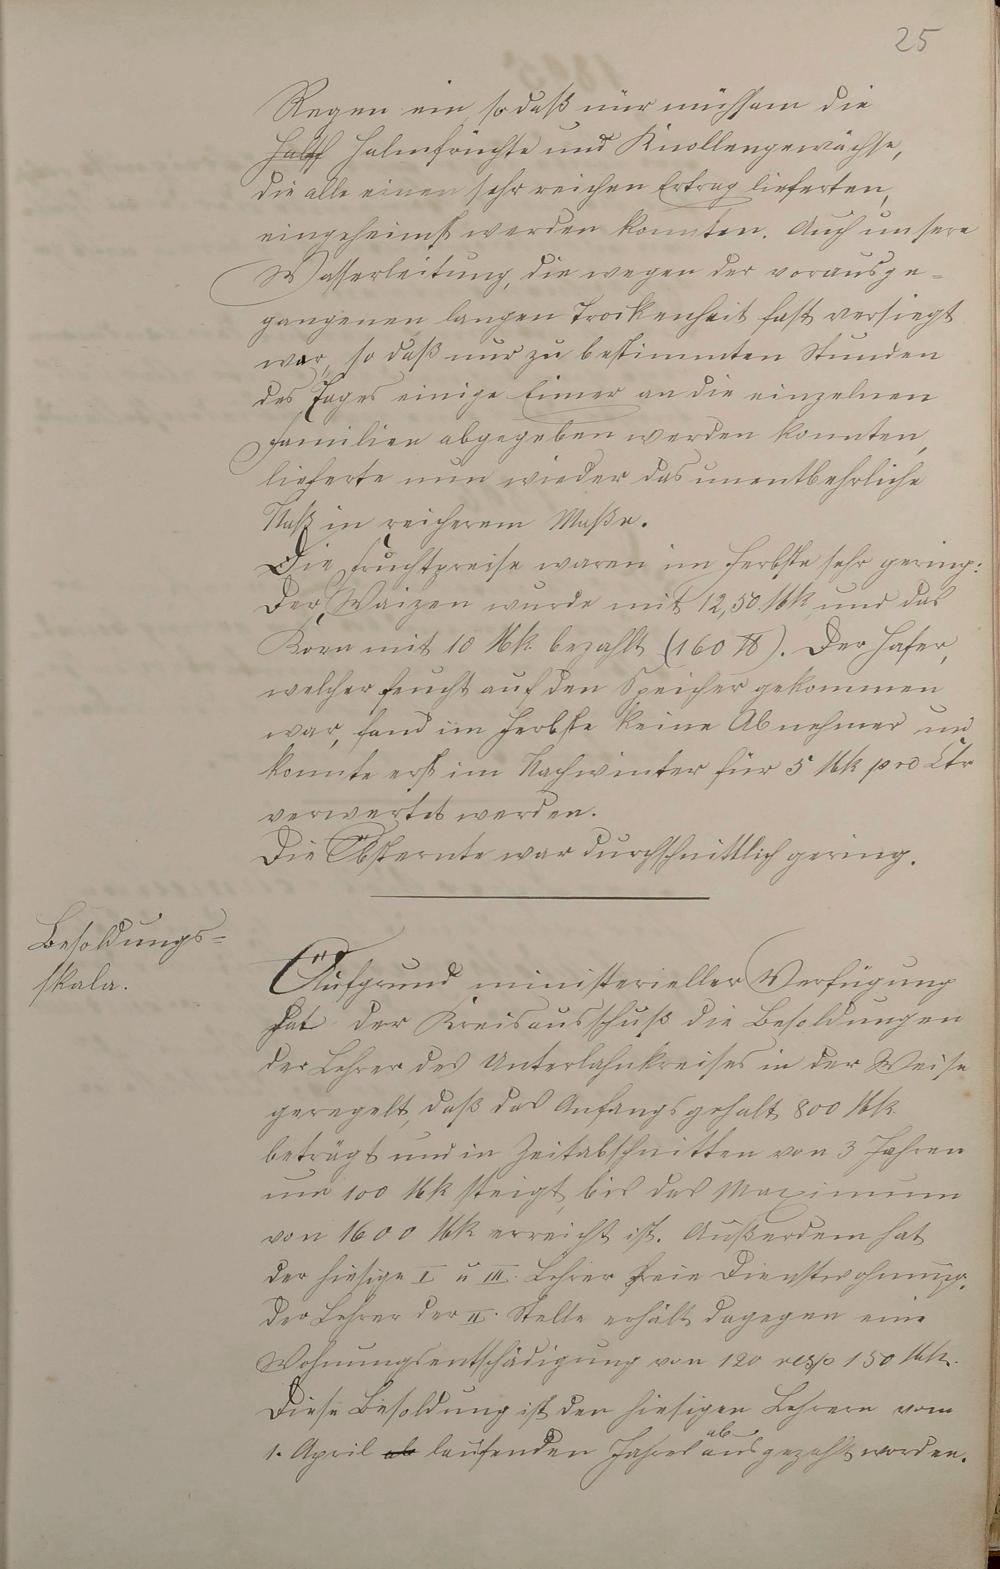 25
Regen ein, so daß nur mühsam die
Halff Halmfrüchte und Knollengewächse,
die alle einen sehr reichen Ertrag lieferten,
eingeheimst werden konnten. Auch unsere
Wasserleitung, die wegen der vorausge-
gangenen langen Trockenheit fast versiegt
war, so daß nur zu bestimmten Stunden
des Tages einige Eimer an die einzelnen
Familien abgegeben werden konnten,
lieferte nun wieder das unentbehrliche
Naß in reicherem Maße.
Die Fruchtpreise waren im Herbste sehr gering:
Der Waizen wurde mit 12,50 Mk und das
Korn mit 10 Mk bezahlt (160 ℔). Der Hafer,
welcher feucht auf den Speicher gekommen
war, fand im Herbste keine Abnehmer und
konnte erst im Nachwinter für 5 Mk pro Ctr
verwertet werden.
Die Obsternte war durchschnittlich gering.
Besoldungs-
skala.
Aufgrund ministerieller Verfügung
hat der Kreisausschuß die Besoldungen
der Lehrer des Unterlahnkreises in der Weise
geregelt, daß das Anfangsgehalt 800 Mk
beträgt und in Zeitabschnitten von 3 Jahren
um 100 Mk steigt, bis das Maximum
von 1600 Mk erreicht ist. Außerdem hat
der hiesige I u III. Lehrer freie Dienstwohnung.
Der Lehrer der II. Stelle erhält dagegen eine
Wohnungsentschädigung von 120 resp 150 Mk.
Diese Besoldung ist den hiesigen Lehrern vom
1. April ab laufenden Jahres ab ausgezahlt worden.